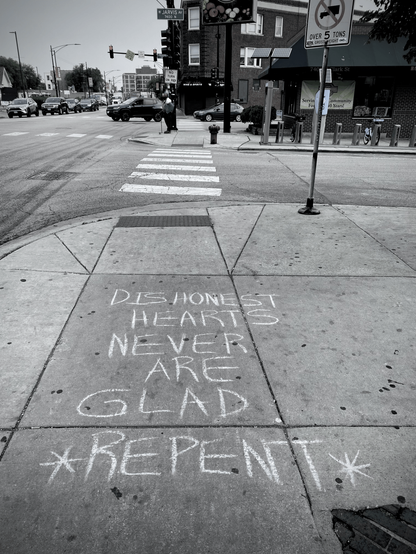 W JARVIS AV
OVER 5 TONS
DISHONEST
HEARTS
NEVER
ARE
GLAD
*REPENT*